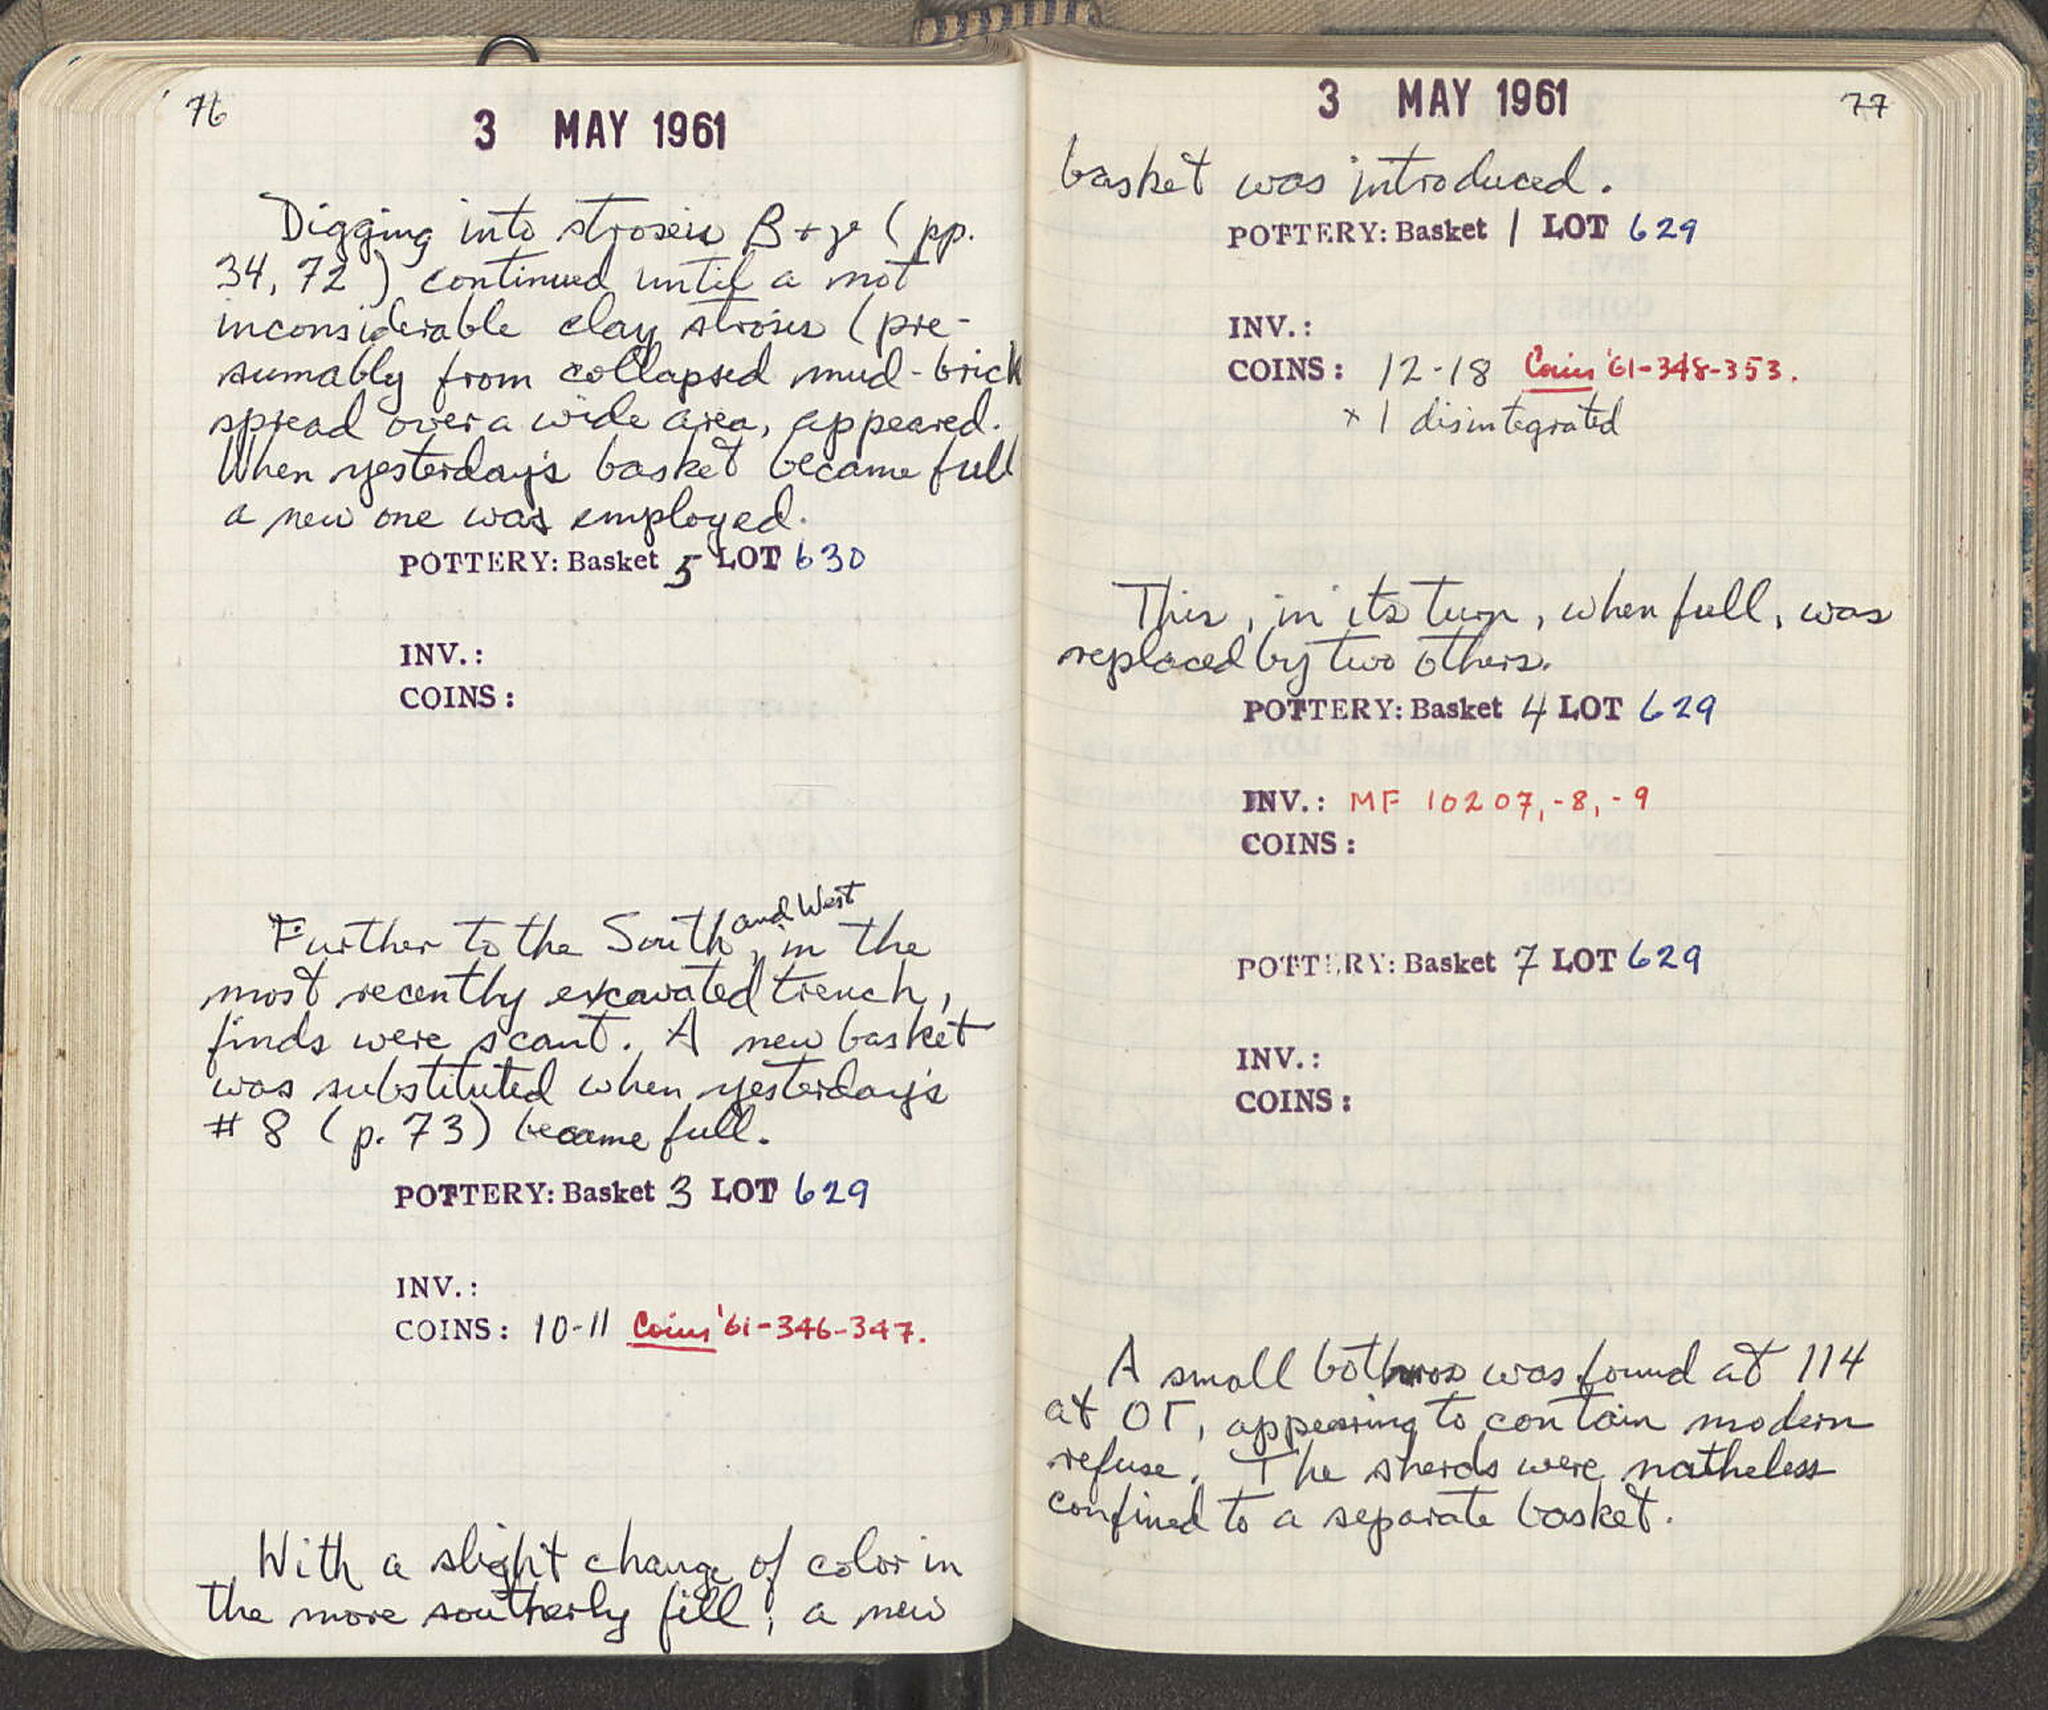 76
3 MAY 1961
Digging into strosis β + γ (pp.
34, 72) continued until a not
inconsiderable clay strosis (pre-
sumably from collapsed mud-brick
spread over a wide area, appeared.
When yesterday's basket became full
a new one was employed.
POTTERY: Basket 5 LOT 630
INV.:
COINS:
Further to the South and West, in the
most recently excavated trench,
finds were scant. A new basket
was substituted when yesterday's
# 8 (p. 73) became full.
POTTERY: Basket 3 LOT 629
INV.:
COINS: 10-11 Coins '61-346-347.
With a slight change of color in
the more southerly fill, a new
3 MAY 1961
77
basket was introduced.
POTTERY: Basket 1 LOT 629
INV.:
COINS: 12-18 Coins '61-348-353.
+ 1 disintegrated
This, in its turn, when full, was
replaced by two others.
POTTERY: Basket 4 LOT 629
INV.: MF 10207, -8, -9
COINS:
POTTERY: Basket 7 LOT 629
INV.:
COINS:
A small bothros was found at 114
at ΟΓ, appearing to contain modern
refuse. The sherds were natheless
confined to a separate basket.